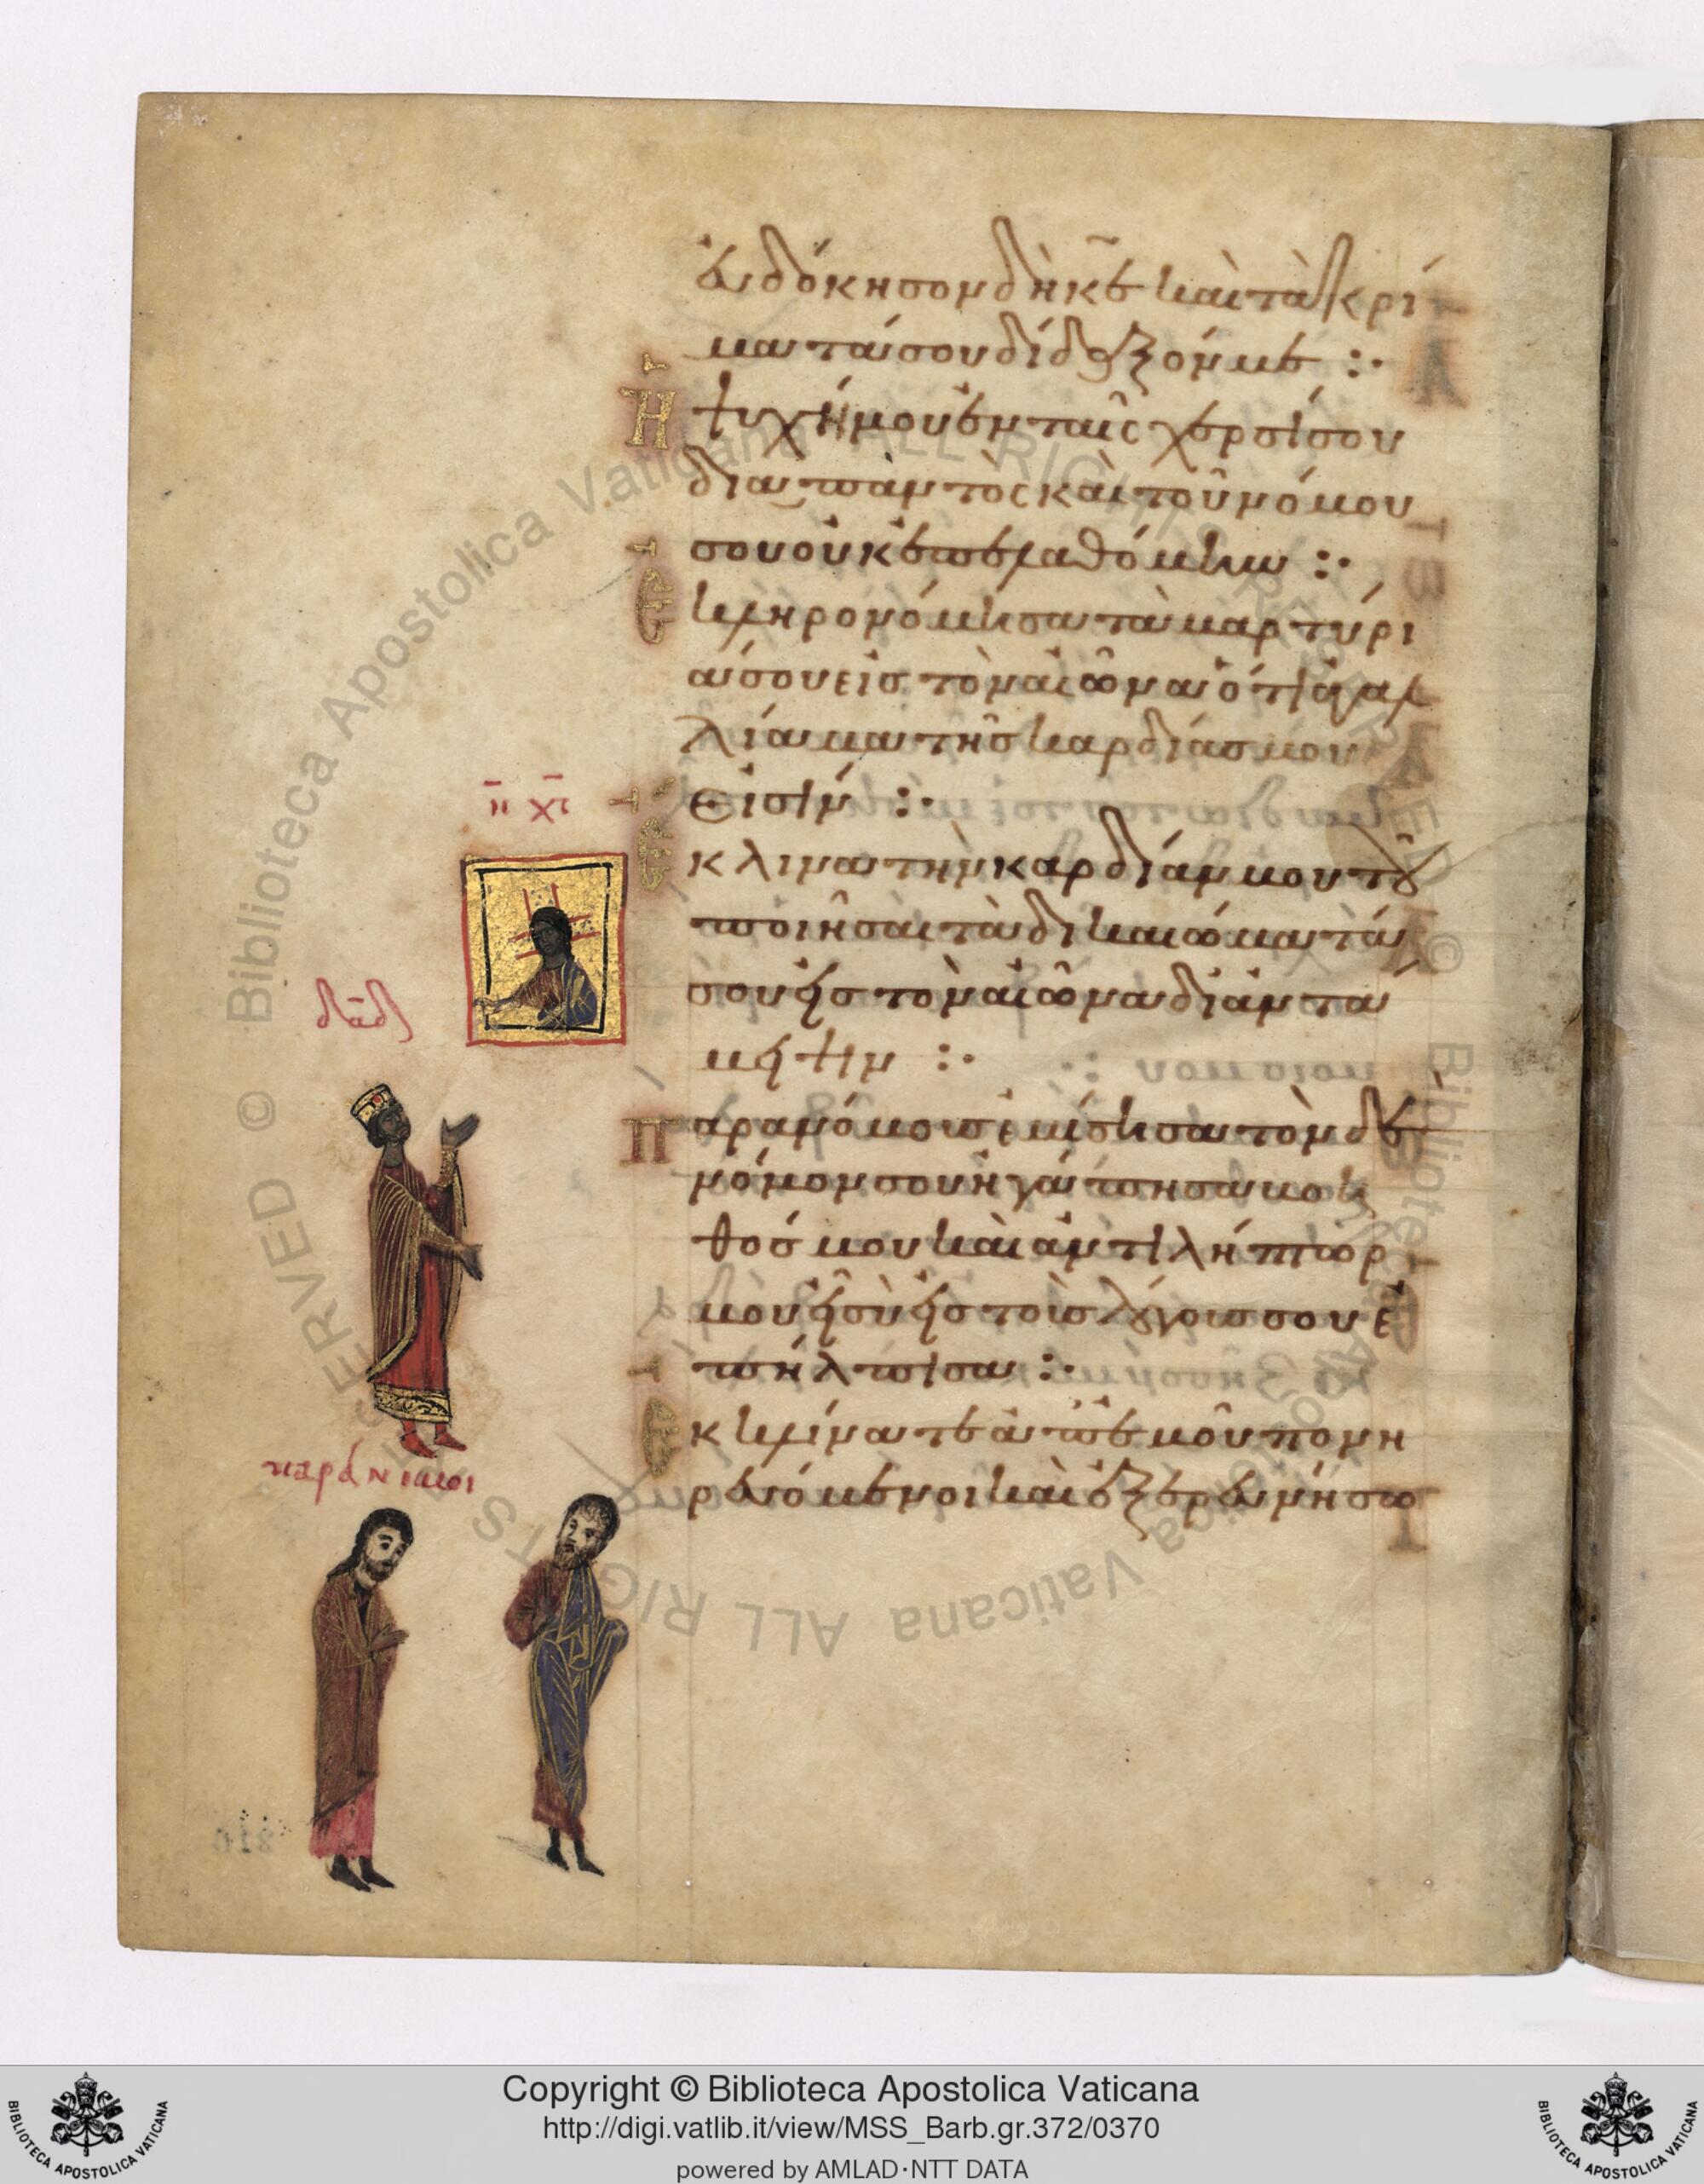 εὐδόκησον δὴ κ̅ε καὶ τὰ κρί
ματά σου δίδαξόν με :·
Ἡ ψυχή μου ἐν ταῖς χερσί σου
διαπαντὸς καὶ τοῦ νόμου
σου οὐκ ἐπελαθόμην :·
Ἐκληρονόμησα τὰ μαρτύρι
ά σου εἰς τὸν αἰῶνα ὅτι ἀγαλ
λίαμα τῆς καρδίας μου
εἰσίν :·
Ἔκλινα τὴν καρδίαν μου τοῦ
ποιῆσαι τὰ δικαιώματά
σου εἰς τὸν αἰῶνα δι ἀντά
μειψιν :·
Παρανόμους ἐμίσησα τὸν δὲ
νόμον σου ἠγάπησα βοη
θός μου καὶ ἀντιλήπτωρ
μου εἶ σὺ εἰς τοὺς λόγους σου ἐ
πήλπισα :·
Ἐκκλίνατε ἀπ ἐμοῦ πονη
ρευόμενοι καὶ ἐξερευνήσω
ι̅ς χ̅ς
δα̅δ
παράνομοι
© Biblioteca Apostolica Vaticana ALL RIGHTS RESERVED
© Biblioteca Apostolica Vaticana ALL RIGHTS RESERVED
Copyright © Biblioteca Apostolica Vaticana
http://digi.vatlib.it/view/MSS_Barb.gr.372/0370
powered by AMLAD·NTT DATA
BIBLIOTECA APOSTOLICA VATICANA
BIBLIOTECA APOSTOLICA VATICANA